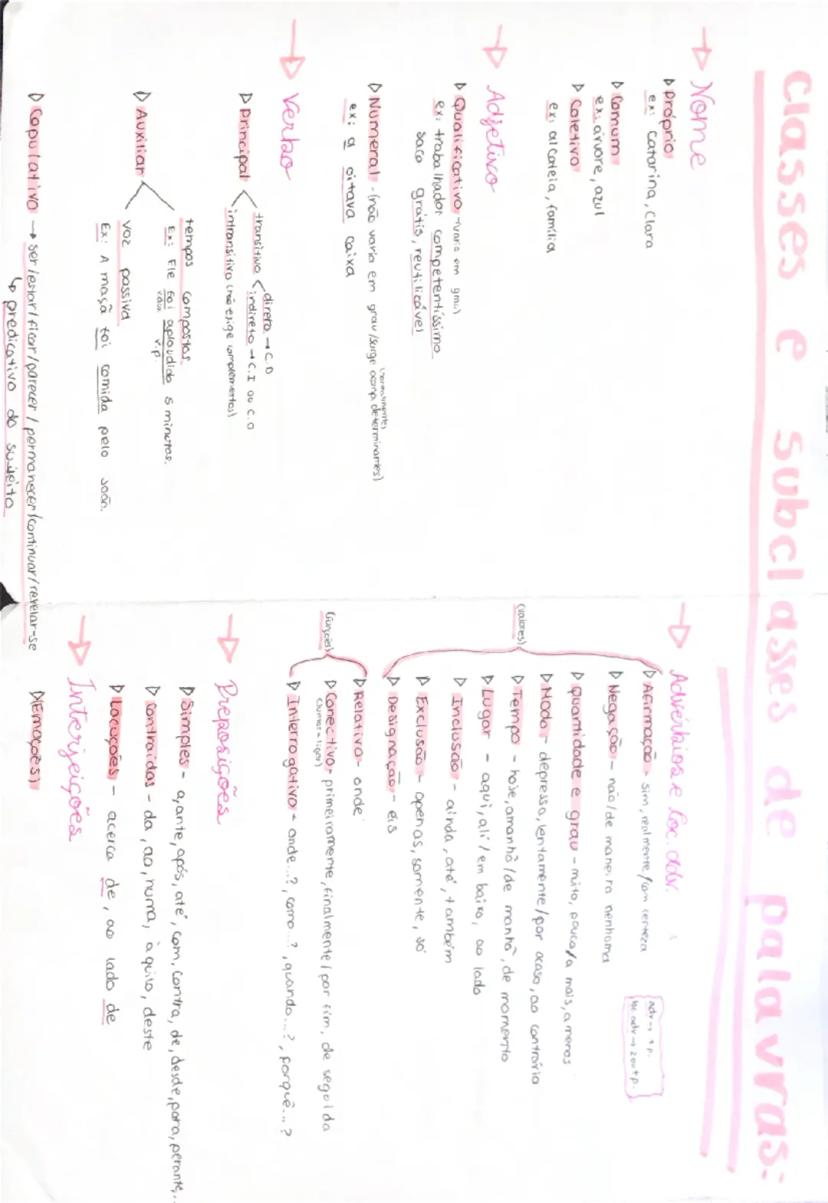 Classes e subclasses de palavras:
Nome
Próprio
ex: Catarina, Clara
Comum
ex: árvore, azul
Coletivo
ex: alcateia, família
Adjetivo
Qualificativo (varia em grau)
ex: trabalhador competentíssimo
saco grátis, reutilizável
Numeral - (não varia em grau/surge acomp. determinantes)
(normalmente)
ex: a oitava caixa
Verbo
Principal
transitivo
direto → C.D
indireto → C.I ou C.O
intransitivo (não exige complementos)
Auxiliar
tempos compostos
Ex: Ele foi aplaudido 5 minutos.
v.p
voz passiva
Ex: A maçã foi comida pelo João.
Copulativo → ser/estar/ficar/parecer/permanecer/continuar/revelar-se
↳ predicativo do sujeito
Advérbios e loc. adv.
adv → 1 p.
loc adv → 2 ou + p.
(valores)
Afirmação - sim, realmente/com certeza
Negação - não/de maneira nenhuma
Quantidade e grau - muito, pouco/a mais, a menos
Modo - depressa, lentamente/por acaso, ao contrário
Tempo - hoje, amanhã/de manhã, de momento
Lugar - aqui, ali/em baixo, ao lado
Inclusão - ainda, até, também
Exclusão - apenas, somente, só
Designação - eis
(funções)
Relativo - onde
Conectivo - primeiramente, finalmente/por fim, de seguida
Interrogativo - onde...?, como...?, quando...?, porquê...?
Preposições
Simples - a, ante, após, até, com, contra, de, desde, para, perante,...
Contraídas - da, ao, numa, àquilo, deste
Locuções - acerca de, ao lado de
Interjeições
(Emoções)